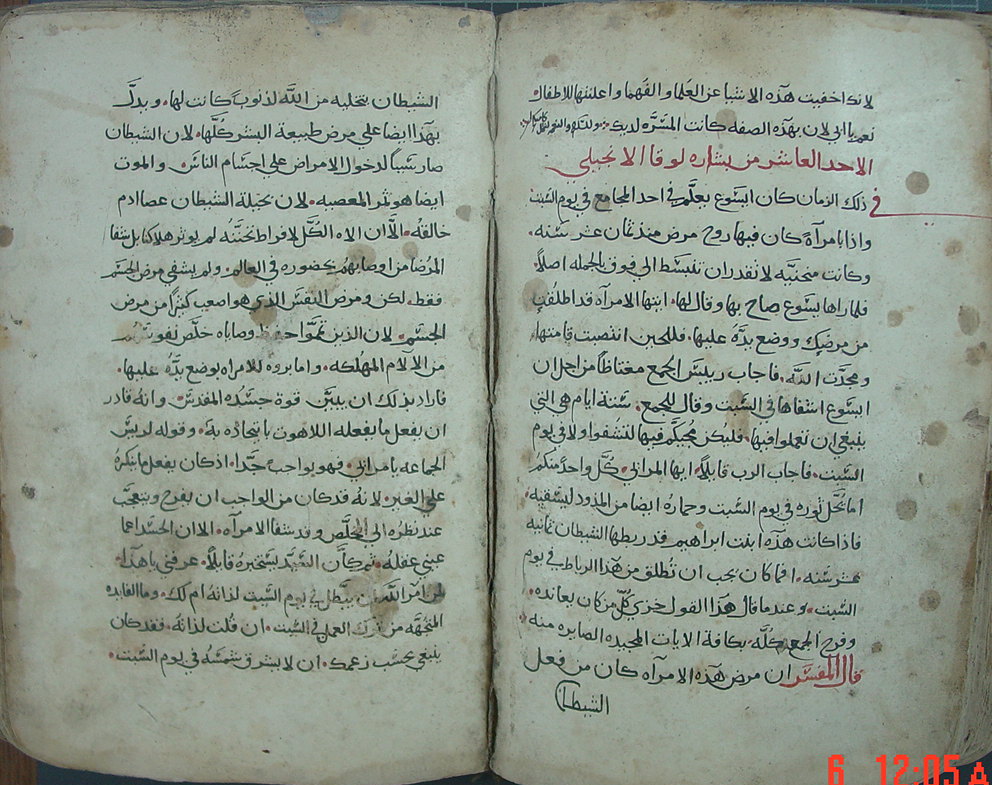 لانك اخفيت هذه الاشيا عن العلما والفهما واعلنتها للاطفال
نعم يا ابي لان بهذه الصفه كانت المسره لديك
الاحد العاشر من بشاره لوقا الانجيلي
في ذلك الزمان كان ايسوع يعلم في احد المجامع في يوم السبت
واذا بامرآة كان فيها روح مرض منذ ثمان عشر سنه.
وكانت منحنيه لا تقدر ان تنبسط الي فوق بالجمله اصلاً.
فلما راها ايسوع صاح بها وقال لها. ايتها الامرآه قد اطلقتِ
من مرضكِ ووضع يدَهُ عليها. فللحين انتصبت قامتها.
ومجدت الله. فاجاب رييس المجمع مغتاظاً من اجل ان
ايسوع اشفاها في السبت وقال للمجمع. ستة ايام هي التي
ينبغي ان تعملوا فيها. فليكن مجيكم فيها لتشفوا ولا في يوم
السبت. فاجاب الرب قايلاً. ايها المرائي. كل واحد منكم
اما يحل ثوره في يوم السبت وحماره ايضا من المذود ليسقيه.
فاذا كانت هذه ابنت ابراهيم قد ربطها الشيطان ثمانيه
عشر سنه. افما كان يجب ان تطلق من هذا الرباط في يوم
السبت. وعندما قال هذا القول خزي كل من كان يعانده.
وفرح الجمع كله. بكافة الايات المجيده الصايره منه.
قال المفسر ان مرض هذه الامرآه كان من فعل
الشيطان
الشيطان بتخليه من الله لذنوب كانت لها. ويدل
بهذا ايضا علي مرض طبيعة البشر كلها. لان الشيطان
صار سبباً لدخول الامراض علي اجسام الناس. والموت
ايضا هو ثمر المعصيه. لان بحيلة الشيطان عصا ادم
خالقه. الا ان الاه الكل لافراط تحننه لم يوثر هلاكنا بل شفا
المرضا من اوصابهم بحضوره في العالم. ولم يشفي مرض الجسم
فقط. لكن ومرض النفس الذي هو اصعب كثيراً من مرض
الجسم. لان الذين حفظ وصاياه خلص نفوسهم
من الالام المهلكه. واما بروه للامراه بوضع يده عليها.
فاراد بذلك ان يبين قوة جسده المقدس. وانه قادر
ان يفعل ما يفعله اللاهوت باتحاده به. وقوله لريس
الجماعه يا مرائي. فهو بواجب جدا. اذ كان يفعل ما ينكره
علي الغير. لانه قد كان من الواجب ان يفرح ويتعجب
عند نظره الي المخلص وقد شفا الامرآه. الا ان الحسد اعما
عيني عقله. وكأن السيد يستخبره قايلاً. عرفني يا هذا.
امر الله ان يبطل في يوم السبت لذاته ام لك. وما الفايده
المتجهه من ترك العمل في السبت. ان قلت لذاته. فقد كان
ينبغي بحسب زعمك. ان لا يشرق شمسه في يوم السبت.
6 12:05 A